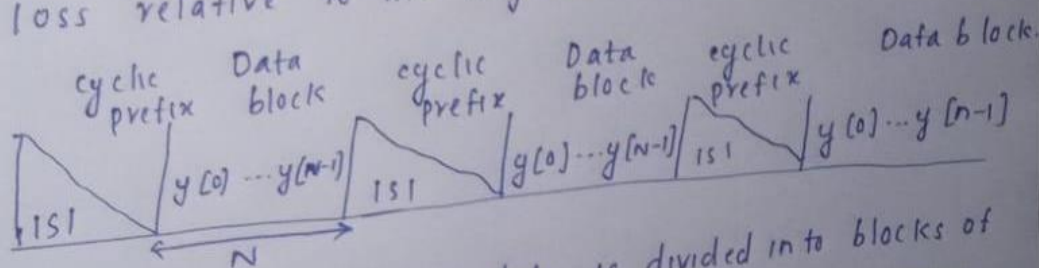 loss relative
cyclic prefix Data block cyclic prefix Data block cyclic prefix Data block.
ISI y[0] ... y[N-1] ISI y[0] ... y[N-1] ISI y[0] ... y[n-1]
N
divided in to blocks of